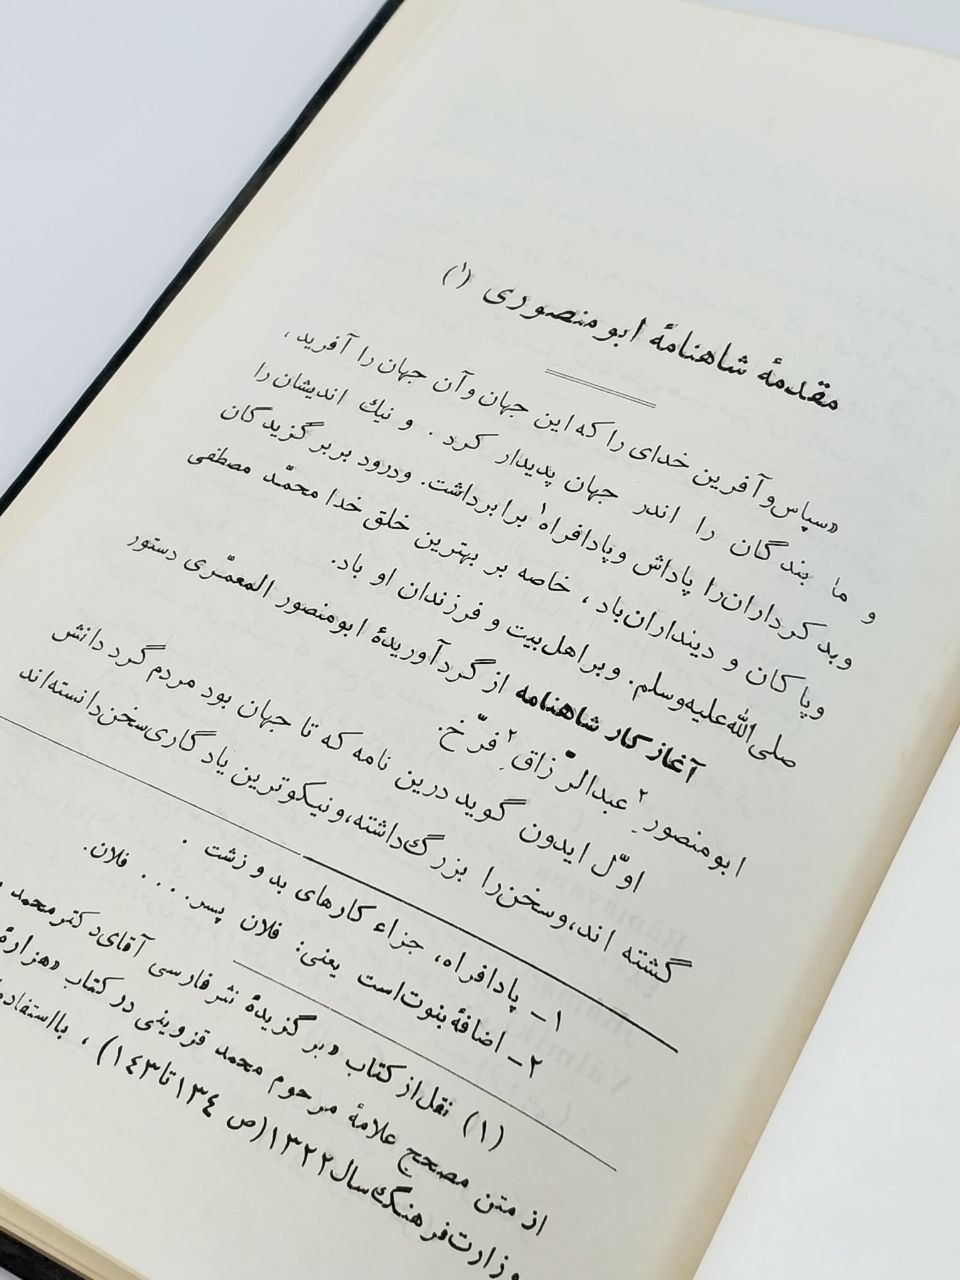 مقدمهٔ شاهنامهٔ ابو منصوری (۱)
«سپاس و آفرین خدای را که این جهان و آن جهان را آفرید ،
و ما بندگان را اندر جهان پدیدار کرد . و نیك اندیشان را
و بد کرداران را پاداش و پادافراه۱ برابر داشت. و درود بر برگزیدگان
و پاکان و دینداران باد ، خاصه بر بهترین خلق خدا محمّد مصطفی
صلی الله علیه وسلم. و بر اهل بیت و فرزندان او باد.
آغاز کار شاهنامه از گرد آوریدهٔ ابومنصور المعمّری دستور
ابومنصورِ ۲ عبدالرّزاقِ ۲ فرّخ.
اوّل ایدون گوید درین نامه که تا جهان بود مردم گرد دانش
گشته اند، و سخن را بزرگ داشته، و نیکوترین یادگاری سخن دانسته‌اند
۱– پادافراه، جزاء کارهای بد و زشت .
۲– اضافهٔ بنوت است یعنی: فلان پسر.... فلان.
(۱) نقل از کتاب «برگزیدهٔ نثر فارسی آقای دکتر محمد
از متن مصحح علامهٔ مرحوم محمد قزوینی در کتاب «هزارهٔ
وزارت فرهنگ سال ۱۳۲۲ (ص ۱۳٤ تا ۱٤۳) ، با استفاده